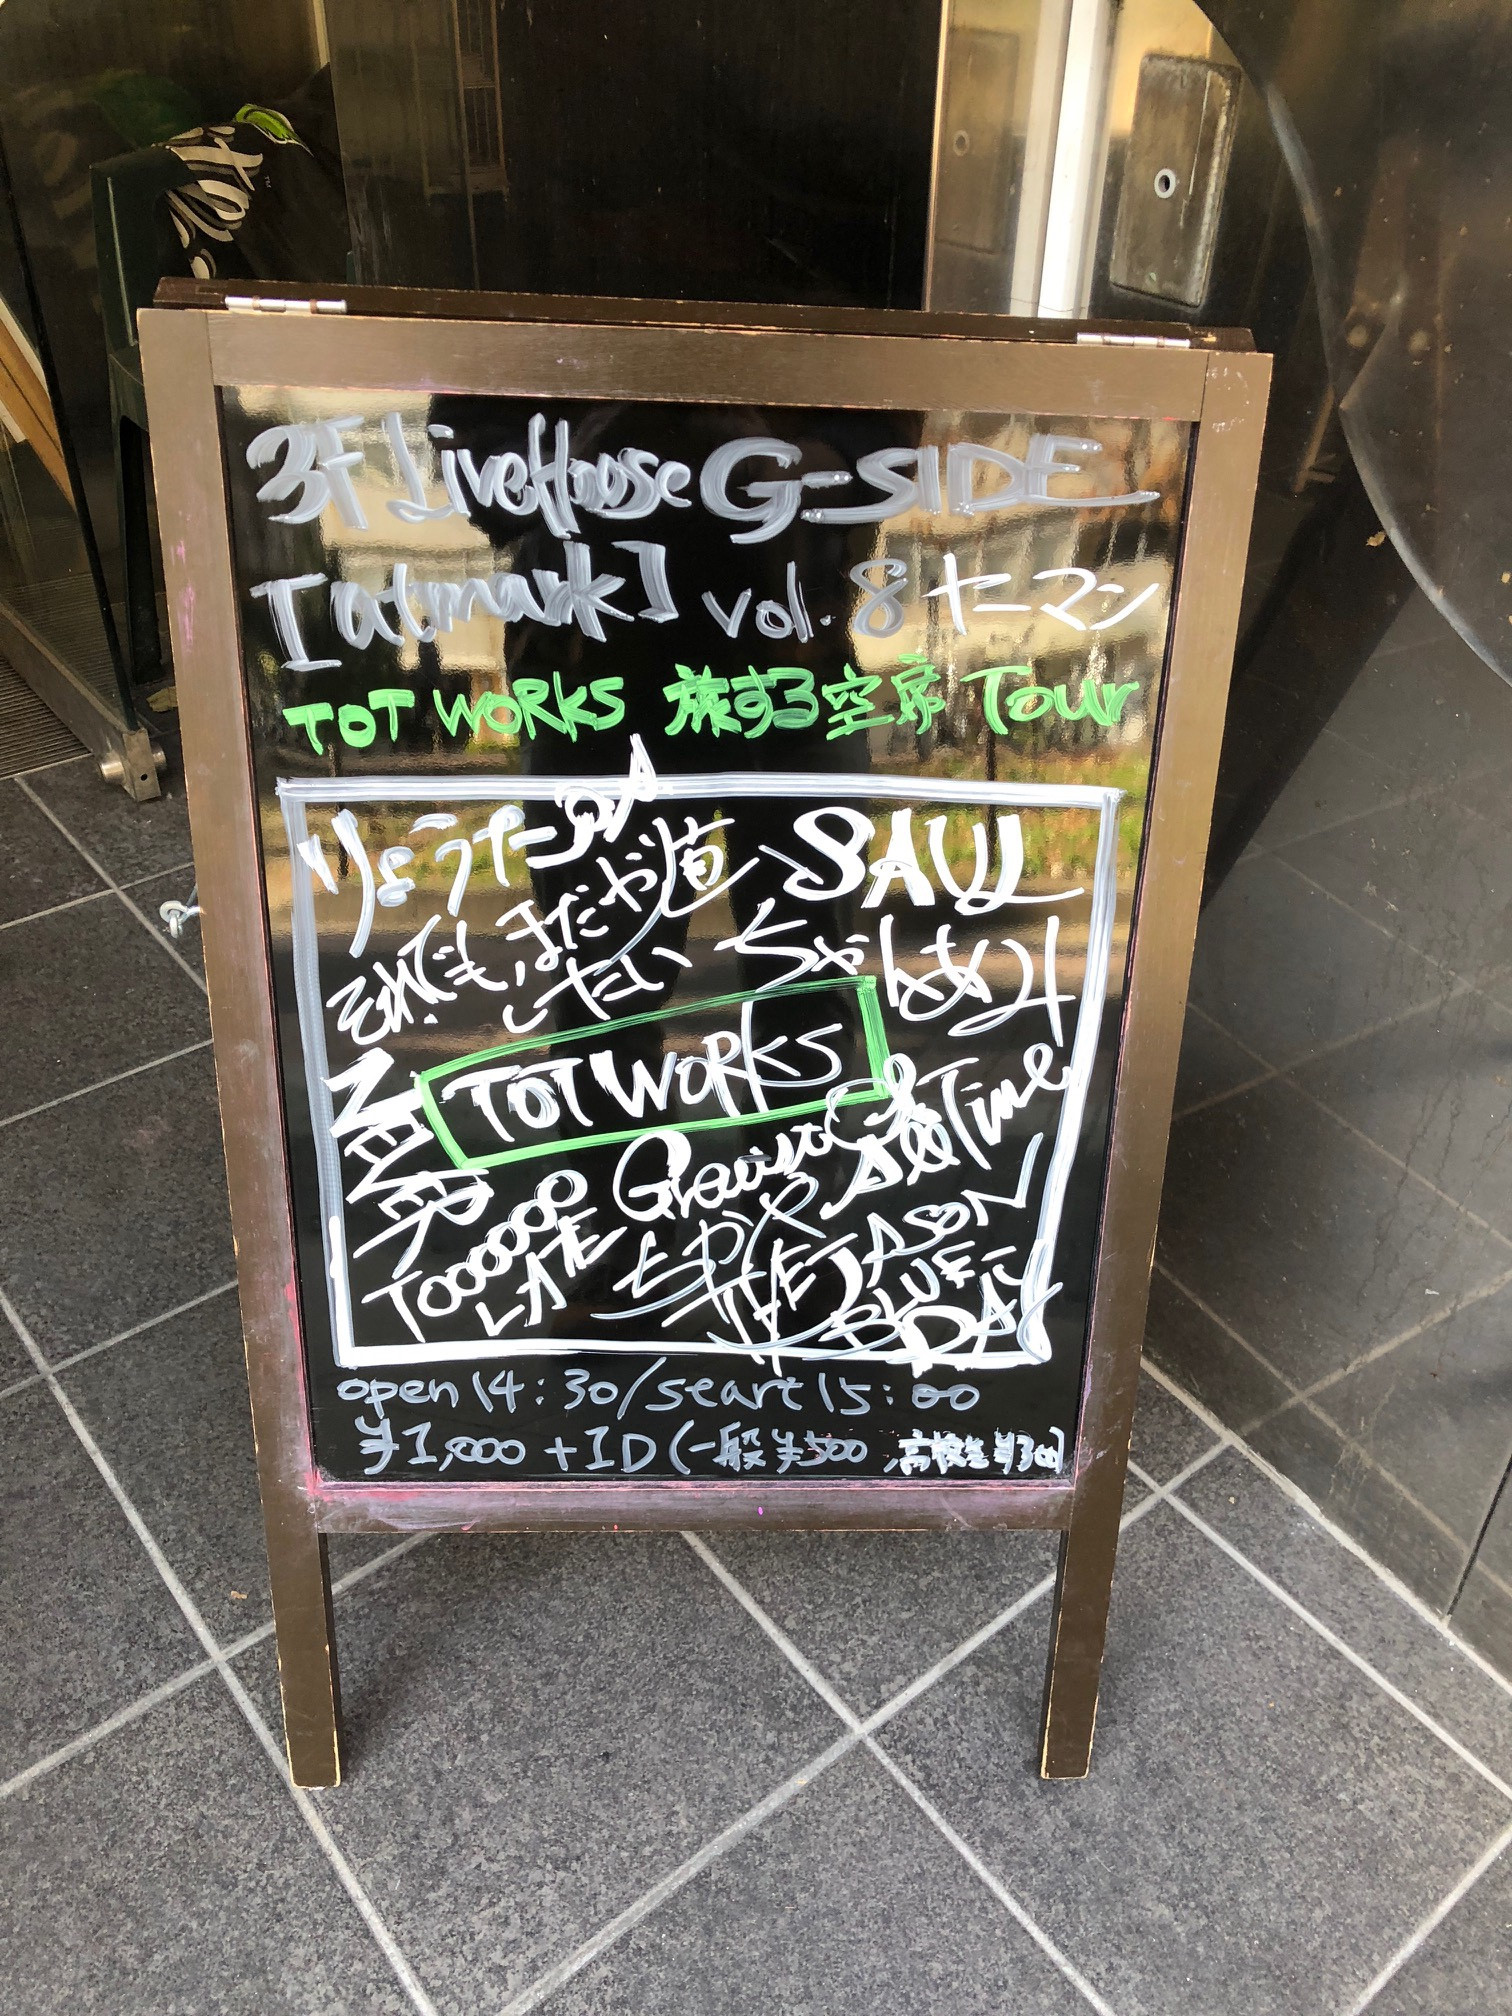 3F LiveHouse G-SIDE
【atmark】vol.8 ヤーマン
TOT WORKS 旅する空席 Tour
りょうたーQA.
SAUL
それでも、まだやり直
したい
ちゃんはみ
TOT WORKS
NEVER
TOOOOOO
LATE
See Time
THE JASON
BLUE
DAY
open 14:30/start 15:00
¥1,000 +1D (一般¥500 高校生¥300)